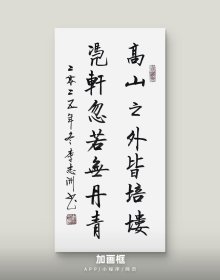 高山之外皆培塿
凴軒忽若無丹青
二零二五年冬李志洲书
加画框
APP/小程序/网页